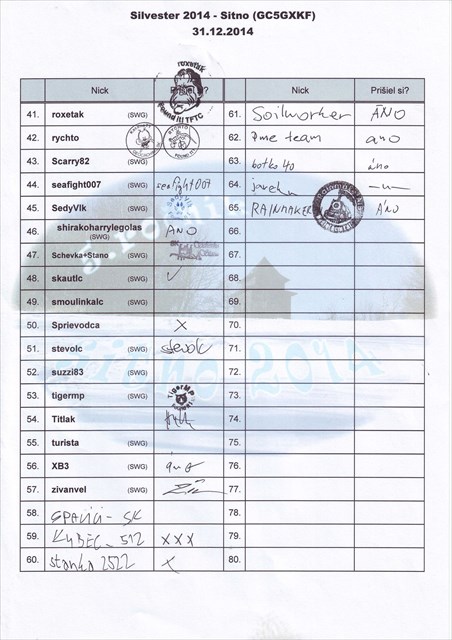 Silvester 2014 - Sitno (GC5GXKF)
31.12.2014
Nick Prišiel si? Nick Prišiel si?
roxetak
Found it! TFTC
41. roxetak (SWG) 61. Soilworker ÁNO
42. rychto (SWG) RYCHTO 62. team ano
43. Scarry82 (SWG) 63. botko40 áno
44. seafight007 (SWG) seafight007 64.
45. SedyVlk (SWG) 65. RAINMAKER ÁNO
46. shirakoharrylegolas (SWG) ANO 66.
47. Schevka+Stano (SWG) 67.
48. skautlc (SWG) ✓ 68.
49. smoulinkalc (SWG) 69.
50. Sprievodca X 70.
51. stevolc (SWG) stevolc 71.
52. suzzi83 (SWG) 72.
53. tigermp (SWG) TigerMP 73.
54. Titlak (SWG) 74.
55. turista (SWG) 75.
56. XB3 (SWG) áno 76.
57. zivanvel (SWG) 77.
58. 78.
59. KYBEC_512 XXX 79.
60. stanka2522 X 80.
2014